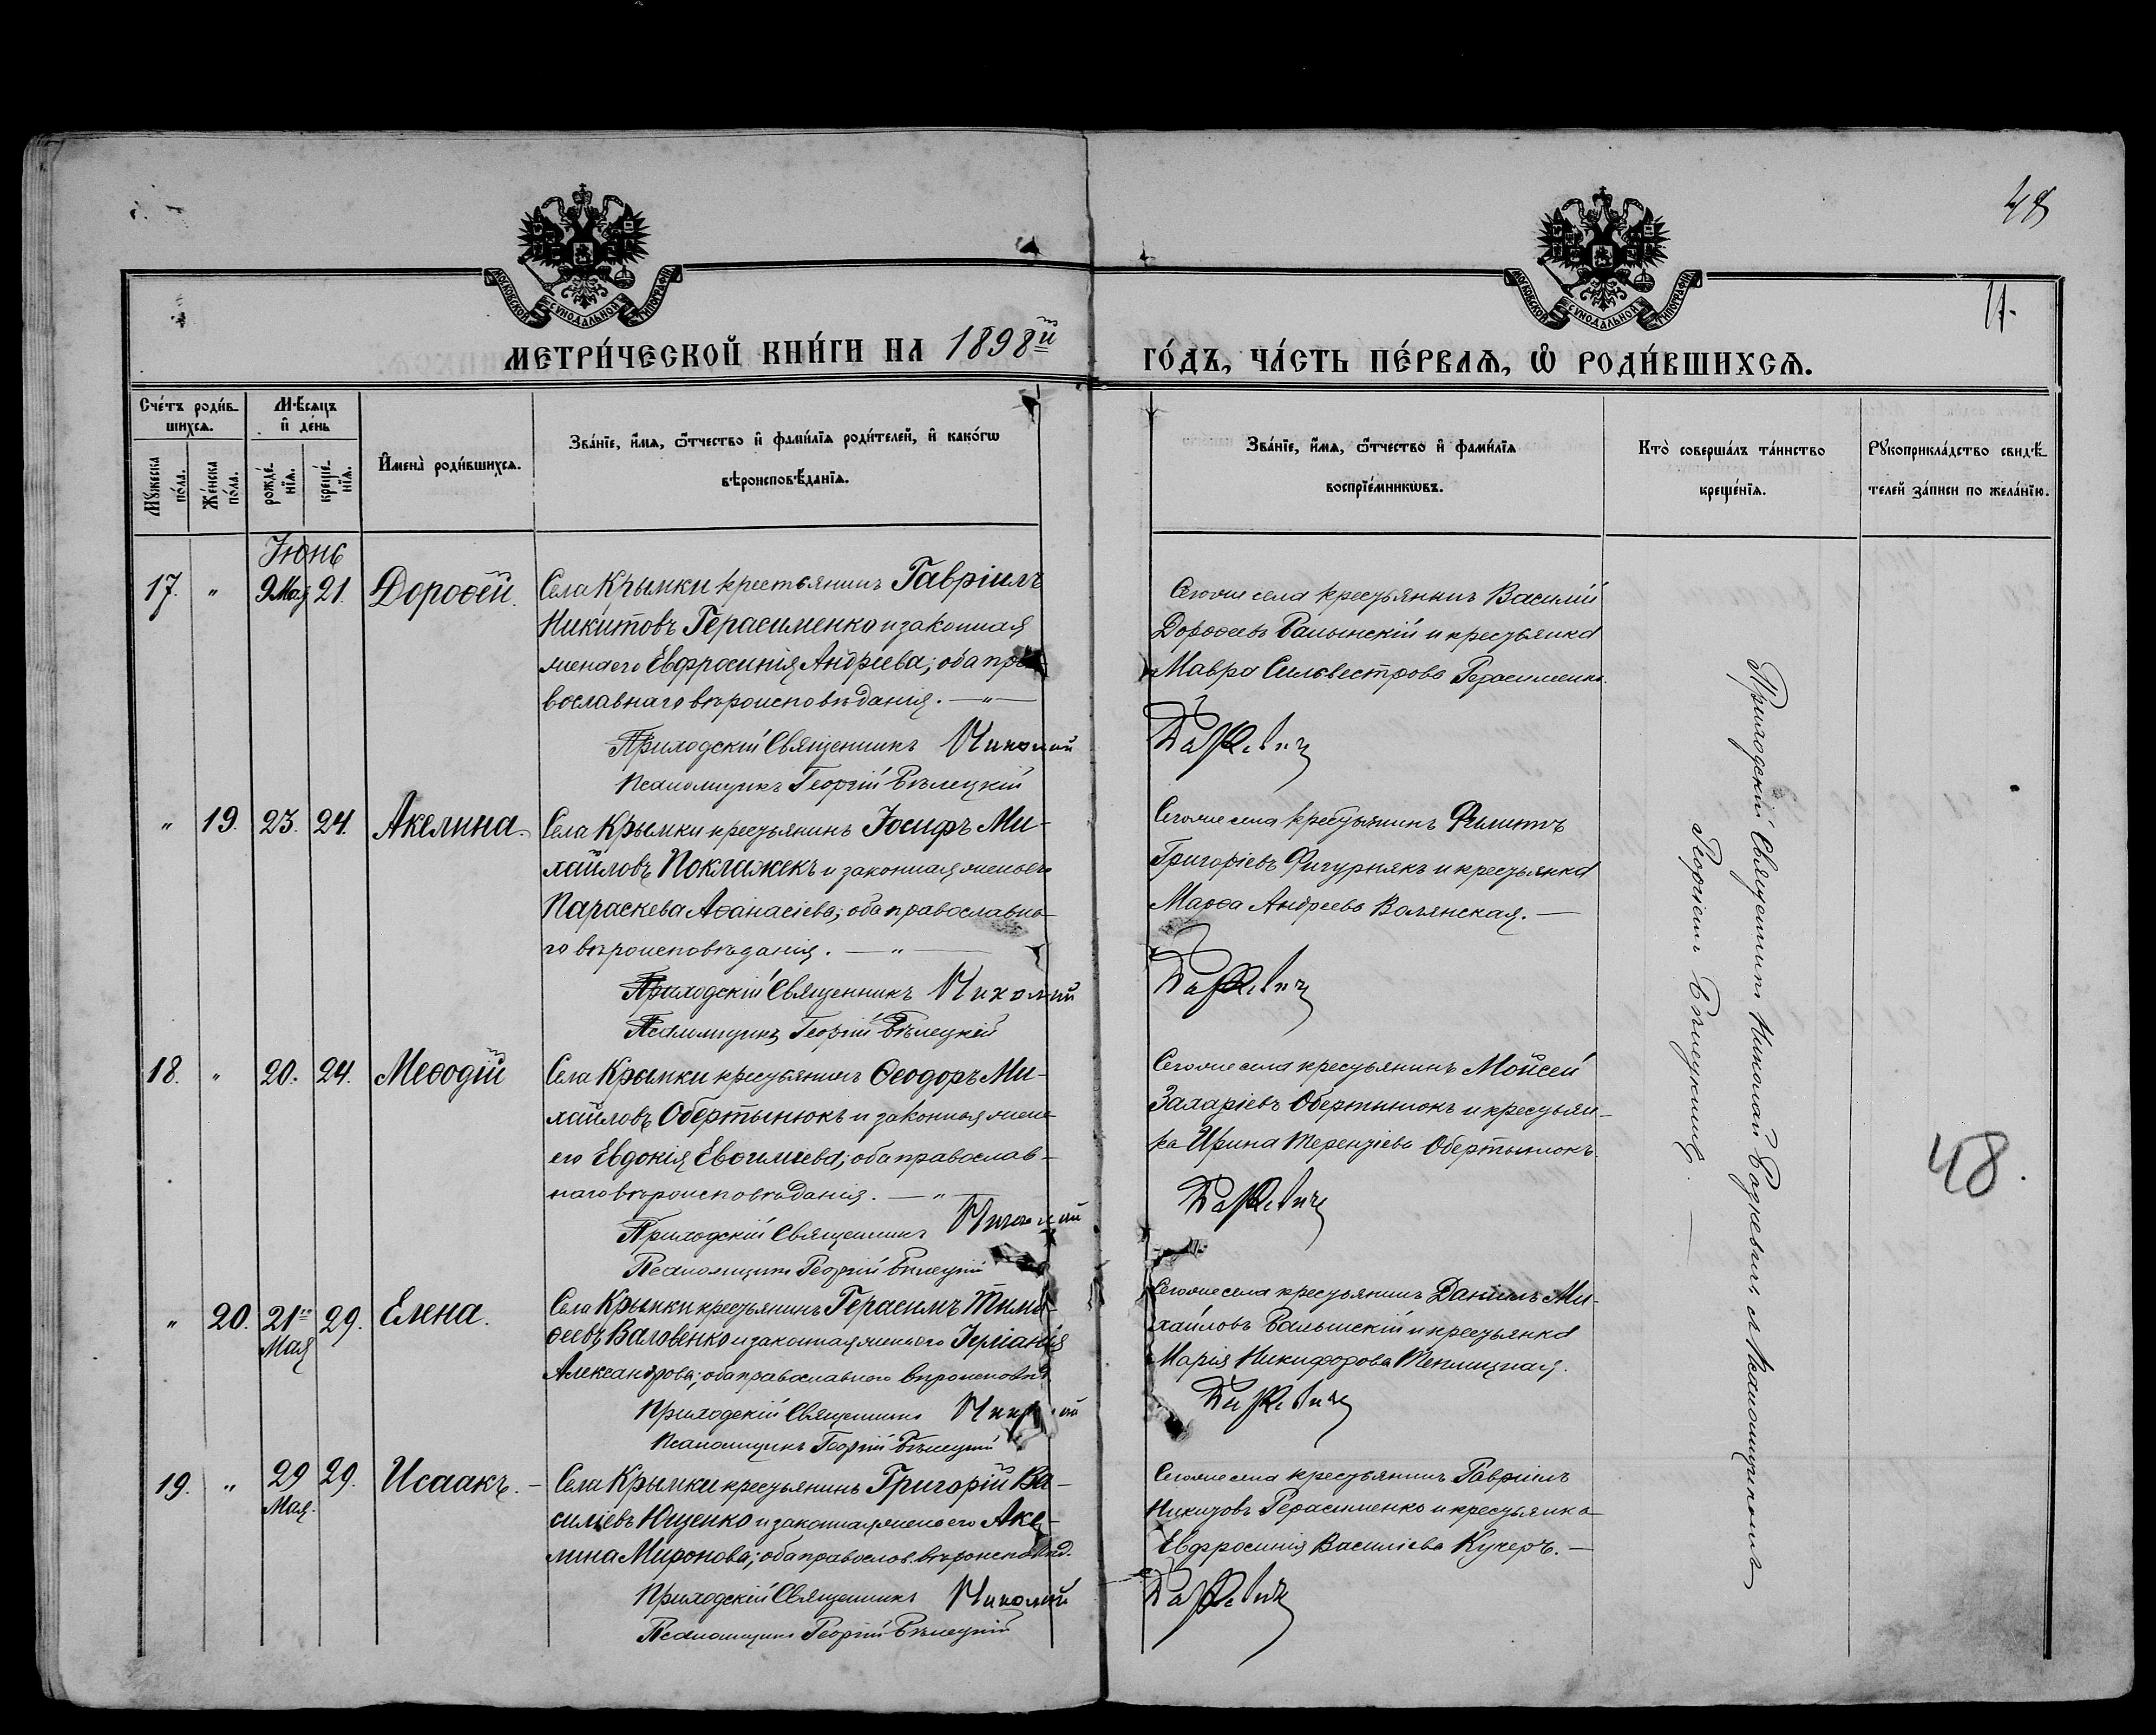 48
11.
МОСКОВСКОЙ СѴНОДАЛЬНОЙ ТИПОГРАФІИ
МОСКОВСКОЙ СѴНОДАЛЬНОЙ ТИПОГРАФІИ
МЕТРИ́ЧЕСКОЙ КНИ́ГИ НА 1898й ГО́ДЪ, ЧА́СТЬ ПЕ́РВАѦ, Ѡ҆ РОДИ́ВШИХСѦ.
Сче́тъ роди́в-
шихсѧ.
Мѣ́сяцъ
и҆ де́нь
Мꙋ́жеска
по́ла.
Же́нска
по́ла.
рожде́-
нїѧ.
креще́-
нїѧ.
И҆мена̀ роди́вшихсѧ.
Зва́нїе, и҆́мѧ, ѻ҆́тчество и҆ фами́лїѧ роди́телей, и҆ како́гѡ
вѣроисповѣ́данїѧ.
Зва́нїе, и҆́мѧ, ѻ҆́тчество и҆ фами́лїѧ
воспрїе́мникѡвъ.
Кто̀ соверша́лъ та́инство
креще́нїѧ.
Рꙋкоприкла́дство свидѣ́-
телей за́писи по жела́нїю.
Іюнь
17. " 9 Мая 21. Дороѳей.
Села Крымки крестьянинъ Гавріилъ
Никитовъ Герасименко и законная
жена его Евфросинія Андреева; оба пра-
вославнаго вѣроисповѣданія. — " —
Приходскій Священникъ Николай
Псаломщикъ Георгій Бѣлецкій
Того же села крестьянинъ Василій
Дороѳеевъ Балынскій и крестьянка
Мавра Сильвестрова Герасименко.
Бацкевичъ
" 19. 23. 24. Акелина.
Села Крымки крестьянинъ Іосифъ Ми-
хайловъ Поклажекъ и законная жена его
Параскева Аѳанасіева; оба православна-
го вѣроисповѣданія. — " —
Приходскій Священникъ Николай
Псаломщикъ Георгій Бѣлецкій
Того же села крестьянинъ Филиппъ
Григоріевъ Фигурнякъ и крестьянка
Марѳа Андреева Волянская. —
18. " 20. 24. Меѳодій
Села Крымки крестьянинъ Ѳеодоръ Ми-
хайловъ Обертынюкъ и законная жена
его Евдокія Евѳиміева; оба православ-
наго вѣроисповѣданія. — " —
Приходскій Священникъ Николай
Псаломщикъ Георгій Бѣлецкій
Того же села крестьянинъ Мойсей
Захаріевъ Обертынюкъ и крестьян-
ка Ирина Терентіева Обертынюкъ.
" 20. 21го Мая 29. Елена.
Села Крымки крестьянинъ Герасимъ Тимо-
ѳеевъ Валовенко и законная жена его Іуліанія
Александрова; оба православнаго вѣроисповѣд.
Приходскій Священникъ Николай
Псаломщикъ Георгій Бѣлецкій
Того же села крестьянинъ Даніилъ Ми-
хайловъ Балынскій и крестьянка
Марія Никифорова Теплицкая.
19. " 29 Мая. 29. Исаакъ. —
Села Крымки крестьянинъ Григорій Ва-
силіевъ Ющенко и законная жена его Аке-
лина Миронова; оба православ. вѣроисповѣд.
Приходскій Священникъ Николай
Псаломщикъ Георгій Бѣлецкій
Того же села крестьянинъ Гавріилъ
Никитовъ Герасименко и крестьянка
Евфросинія Василіева Кучеръ. —
Приходскій Священникъ Николай и Псаломщикомъ
Георгіемъ Бѣлецкимъ. —
48.